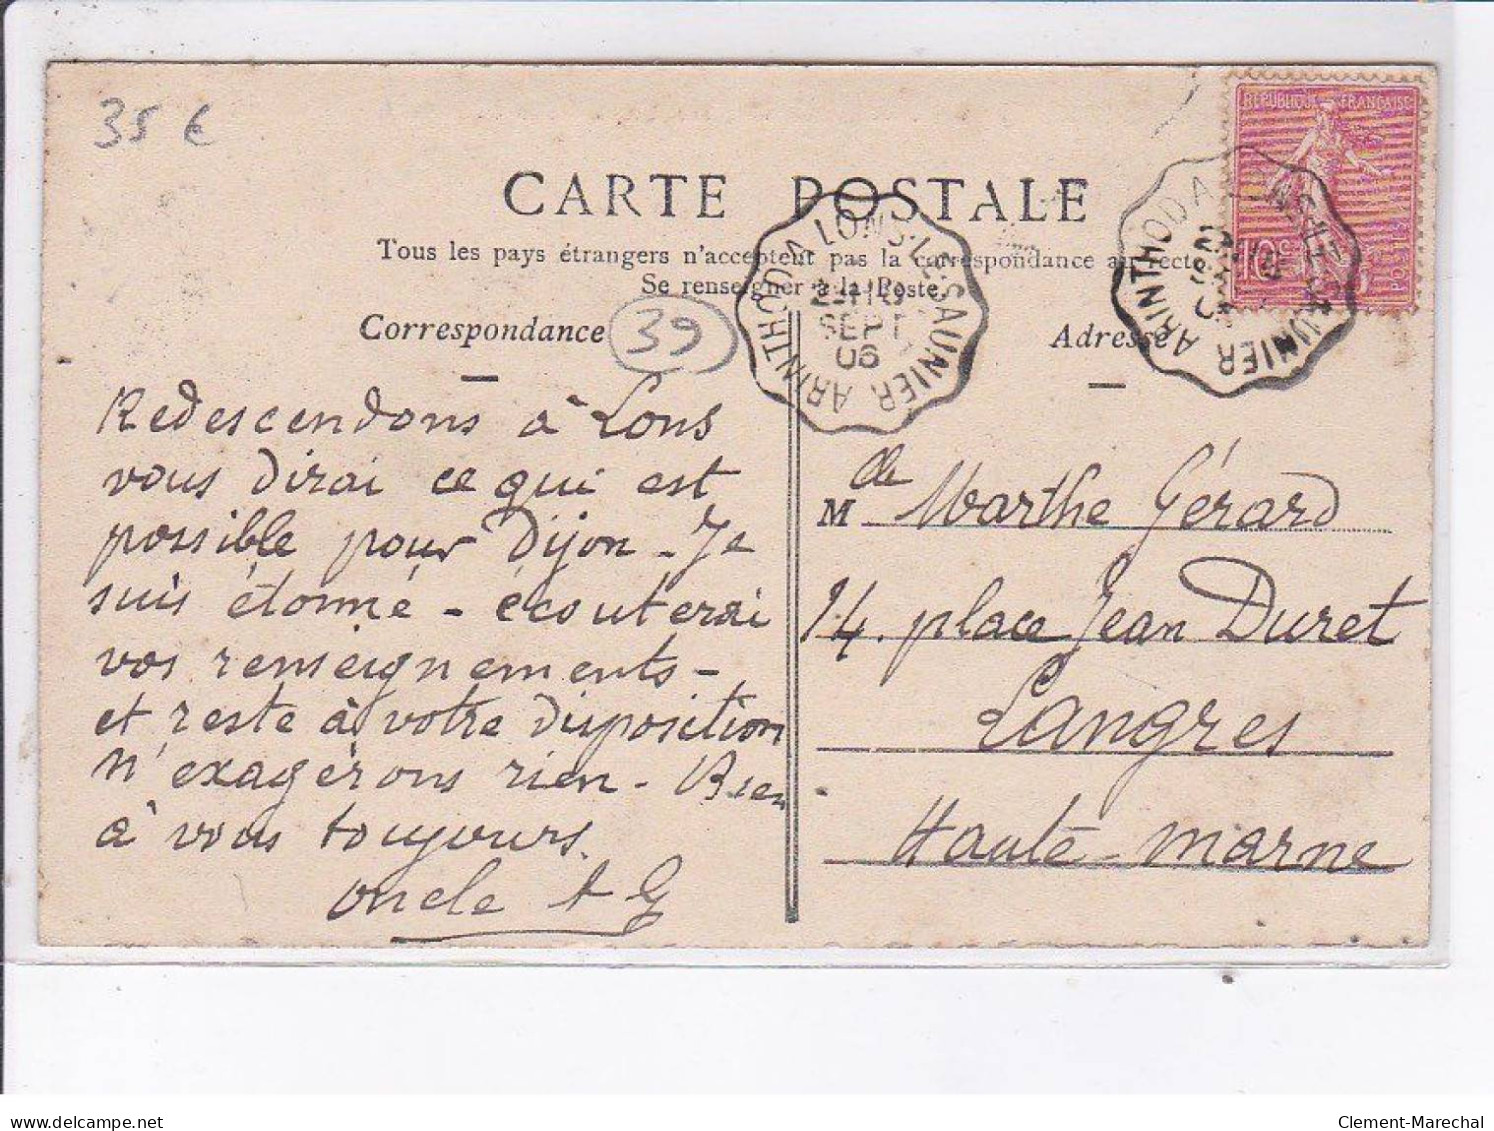 35 €
CARTE POSTALE
Tous les pays étrangers n'acceptent pas la correspondance au recto
Se renseigner à la Poste
Correspondance
39
Adresse
ARINTHOD A LONS-LE-SAUNIER
SEPT
06
ARINTHOD A LONS-LE-SAUNIER
REPUBLIQUE FRANÇAISE
10c
POSTES
Redescendons à Lons
vous dirai ce qui est
possible pour Dijon - Je
suis étonné - écouterai
vos renseignements -
et reste à votre disposition
N'exagérons rien - Bien
à vous toujours.
Oncle A G
Mde Marthe Gérard
14. place Jean Duret
Langres
Haute-marne
delcampe.net
Clement-Marechal